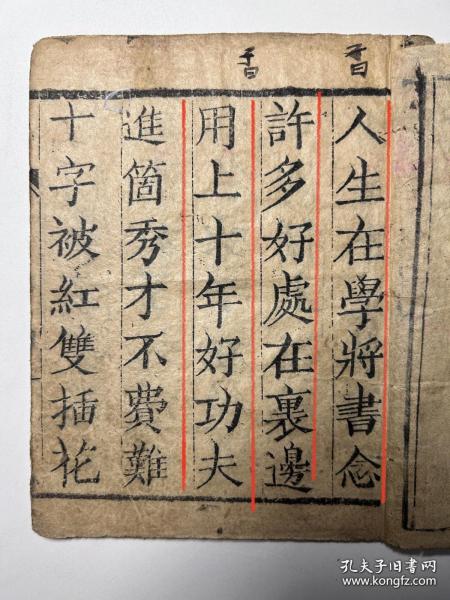 人生在學將書念
許多好處在裏邊
用上十年好功夫
進箇秀才不費難
十字被紅雙插花
孔夫子旧书网
www.kongfz.com